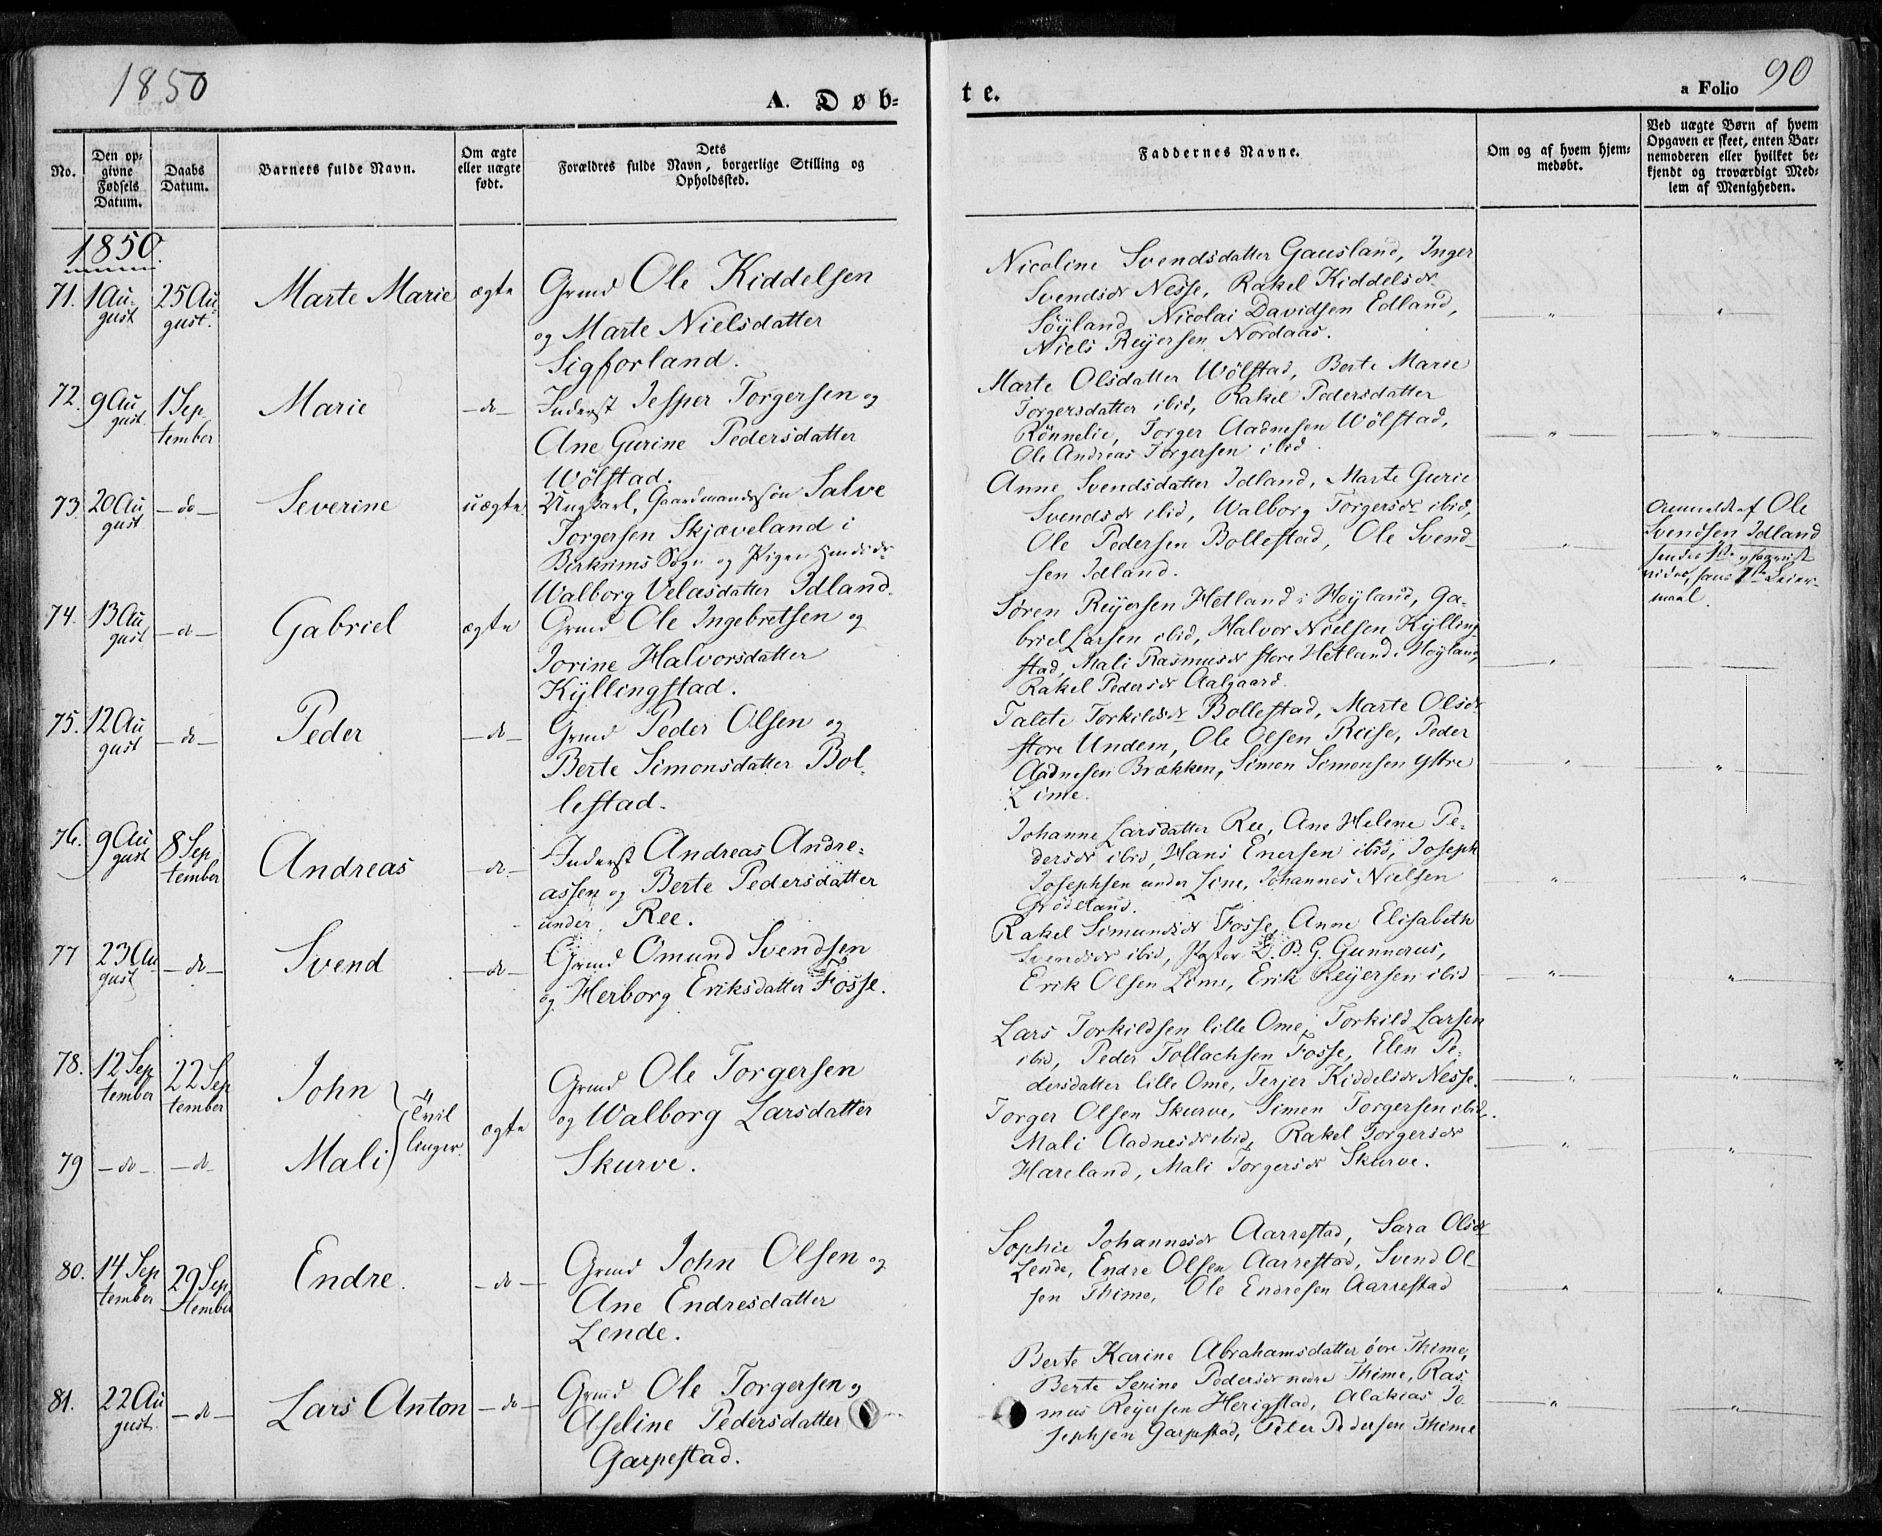 1850
A. Døb-
te.
a Folio 90
No.
Den op-
givne
Fødsels
Datum.
Daabs
Datum.
Barnets fulde Navn.
Om ægte
eller uægte
født.
Dets
Forældres fulde Navn, borgerlige Stilling og
Opholdssted.
Faddernes Navne.
Om og af hvem hjem-
medøbt.
Ved uægte Børn af hvem
Opgaven er skeet, enten Bar-
nemoderen eller hvilket be-
kjendt og troværdigt Med-
lem af Menigheden.
1850.
71. 1 Au-
gust
25 Au-
gust.
Marte Marie
ægte
Grmd Ole Kiddelsen
og Marte Nielsdatter
Sigforland.
Nicoline Svendsdatter Gausland, Inger
Svendsdr Nesse, Rakel Kiddelsdr
Söyland, Nicolai Davidsen Edland,
Niels Reyersen Nordaas.
72. 9 Au
gust.
1 Sep
tember
Marie
-do-
Inderst Jesper Torgersen og
Ane Gurine Pedersdatter
Wölstad.
Marte Olsdatter Wölstad, Berte Marie
Torgersdatter ibid, Rakel Pedersdatter
Rönnelie, Torger Aadnesen Wölstad,
Ole Andreas Torgersen ibid.
73. 20 Au
gust
-do-
Severine
uægte
Ungkarl, Gaardmandssön Salve
Torgersen Skjæveland i
Birkrims Sogn og Pigen
Walborg Velasdatter Idland.
Anne Svendsdatter Idland, Marte Gurie
Svendsdr ibid, Walborg Torgersdr ibid,
Ole Pedersen Bollestad, Ole Svend-
sen Idland.
Anmeldt af Ole
Svendsen Idland
maal.
74. 13 Au
gust
-d-
Gabriel
ægte
Grmd Ole Ingebretsen og
Jorine Halvorsdatter
Kyllingstad.
Sören Reyersen Hetland i Höyland, Ga-
briel Larsen ibid, Halvor Nielsen Kylling-
stad, Mali Rasmusdr store Hetland i Höyland,
Rakel Pedersdr Aalgaard.
75. 12 Au
gust
-do-
Peder
-do-
Grmd Peder Olsen og
Berte Simonsdatter Bol-
lestad.
Talete Torkildsdr Bollestad, Marte Olsdr
store Undem, Ole Olsen Riise, Peder
Aadnesen Brækken, Simon Simonsen ystre
Lime.
76. 9 Au
gust
8 Sep
tember
Andreas
-do-
Inderst Andreas Andre-
assen og Berte Pedersdatter
under Ree.
Johanne Larsdatter Ree, Ane Helene Pe-
dersdr ibid, Hans Enersen ibid, Joseph
Josephsen under Line, Johannes Nielsen
Grödeland.
77 23 Au
gust
-do-
Svend
-do-
Grmd Omund Svendsen
og Herborg Eriksdatter Fosse.
Rakel Simundsdr Fosse, Anne Elisabeth
Svendsdr ibid, Pastor D. B. G. Gunnerus,
Erik Olsen Lime, Erik Reyersen ibid
78. 12 Sep
tember
22 Sep
tember
John
Tvil
linger.
ægte
Grmd Ole Torgersen
og Walborg Larsdatter
Skurve.
Lars Torkildsen lille Ome, Torkild Larsen
ibid, Peder Tollachsen Fosse, Elen Pe-
dersdatter lille Ome, Terjer Kiddelsdr Nesse.
79 -do-
-do-
Mali
Torger Olsen Skurve, Simen Torgersen ibid.
Mali Aadnesdr ibid, Rakel Torgersdr
Hareland, Mali Torgersdr Skurve.
80. 14 Sep
tember
29 Sep
tember
Endre.
-do-
Grmd John Olsen og
Ane Endresdatter
Lende.
Sophie Johannesdr Aarrestad, Sara Olsdr
Lende, Endre Olsen Aarrestad, Svend Ol-
sen Thime, Ole Endresen Aarrestad
81. 22 Au
gust.
-do-
Lars Anton
-do-
Grmd Ole Torgersen og
Aseline Pedersdatter
Garpestad.
Berte Karine Abrahamsdatter övre Thime,
Berte Serine Pedersdr nedre Thime, Ras
mus Reyersen Herigstad, Alakias Jo
sephsen Garpestad, Peter Pedersen Thime